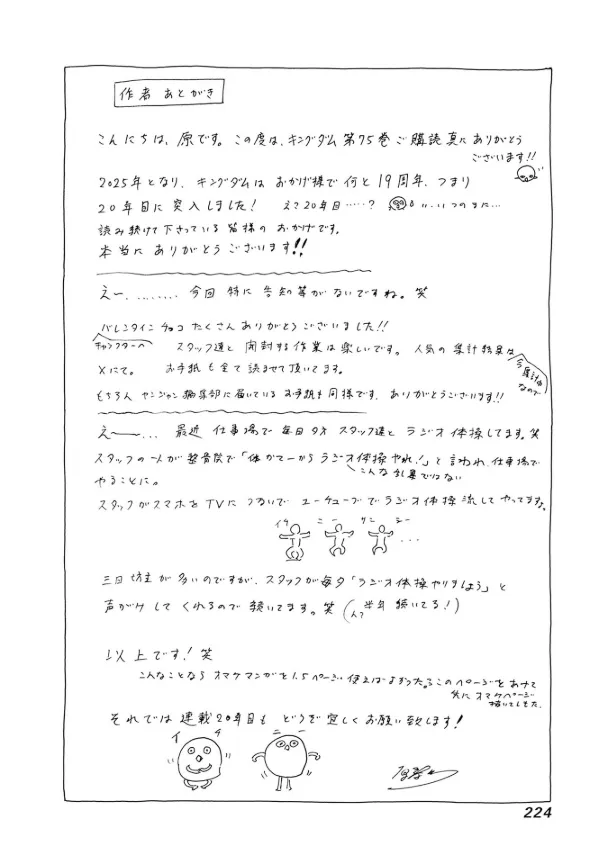 作者あとがき
こんにちは、原です。この度は、キングダム第75巻ご購読真にありがとう
ございます!!
2025年となり、キングダムはおかげ様で何と19周年、つまり
20年目に突入しました! え?20年目……? い、いつのまに…
読み続けて下さっている皆様のおかげです。
本当にありがとうございます!!
えー、……… 今回特に告知等がないですね。笑
バレンタインチョコたくさんありがとうございました!!
キャラクターへ
スタッフ達と開封する作業は楽しいです。人気の集計結果は
今集計中
なので
Xにて。 お手紙も全て読ませて頂いてます。
もちろんヤンジャン編集部に届いているお手紙も同様です。ありがとうございます!!
えー〜…最近仕事場で毎日夕方スタッフ達とラジオ体操してます。笑
スタッフの一人が整骨院で「体かてーからラジオ体操やれ!」と言われ、仕事場で
こんな乱暴ではない
やることに。
スタッフがスマホをTVにつないでユーチューブでラジオ体操流してやってますね。
イチ ニー サン シー
…
三日坊主が多いのですが、スタッフが毎夕「ラジオ体操やりましょう」と
声がけしてくれるので続いてます。笑(人?半年続いてる!)
以上です! 笑
こんなことならオマケマンガを1.5ページ使えばよかった。このページをあけて
先にオマケページ
描いてしまた。
それでは連載20年目もどうぞ宜しくお願い致します!
イチ ニー
224